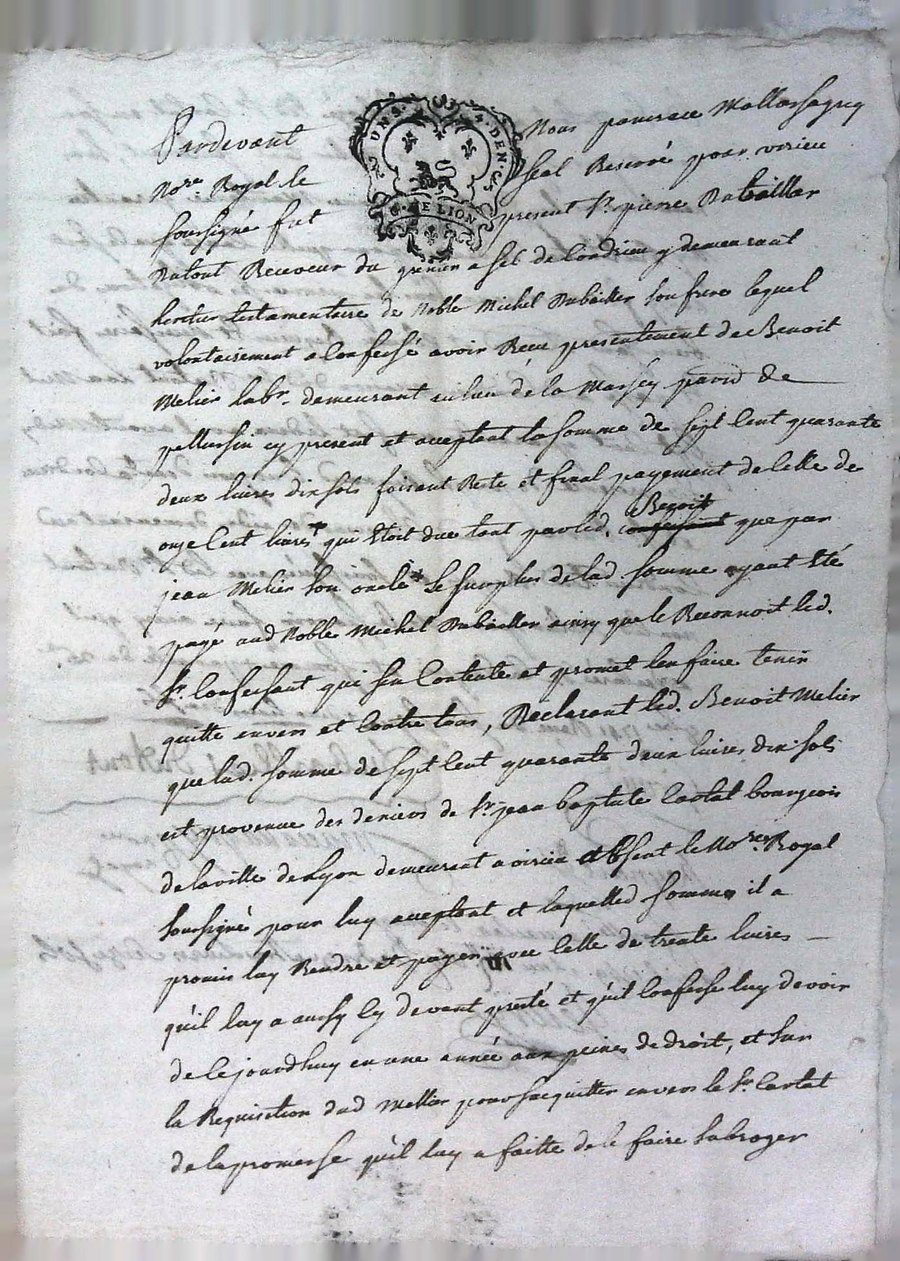 Pardevant Nous pancrace
No.re Royal le seul Reservé pour virieu
soussigné fut present Sr. pierre Dubaillier
Dutout Receveur du grenier a sel de Condrieu y demeurant
heritier testamentaire de Noble Michel Dubailler son frere lequel
volontairement a confessé avoir Receu presentement de Benoit
Melier labr. demeurant au lieu de la parr. de
pellussin cy present et acceptant la somme de sept cent quarante
deux livres dix sols faisant Reste et final payement de celle de
onze cent livres qui Etoit due tant par led. Benoit que par
jean Melier son oncle le surplus de lad somme ayant Eté
payé aud Noble Michel Dubailler ainsy que le Reconnoit led.
Sr. Confessant qui sen Contente et promet len faire tenir
quitte envers et Contre tous, Declarant led. Benoit Melier
que lad. somme de sept cent quarante deux livres dix sols
est provenue des deniers de Sr. jean baptiste Cartat bourgeois
de la ville de Lyon demeurant a virieu absent le No.re Royal
soussigné pour luy acceptant et laquelle d somme il a
promis luy Rendre et payer avec celle de trente livres
qu'il luy a aussy cy devant presté et qu'il confesse luy devoir
de ce jourdhuy en une année aux peines de droit, et sur
la Requisition dud Mellier pour sacquitter envers le Sr. Cartat
de la promesse qu'il luy a faitte de le faire subroger
DEUX S. 4. DEN.
G. DE LION